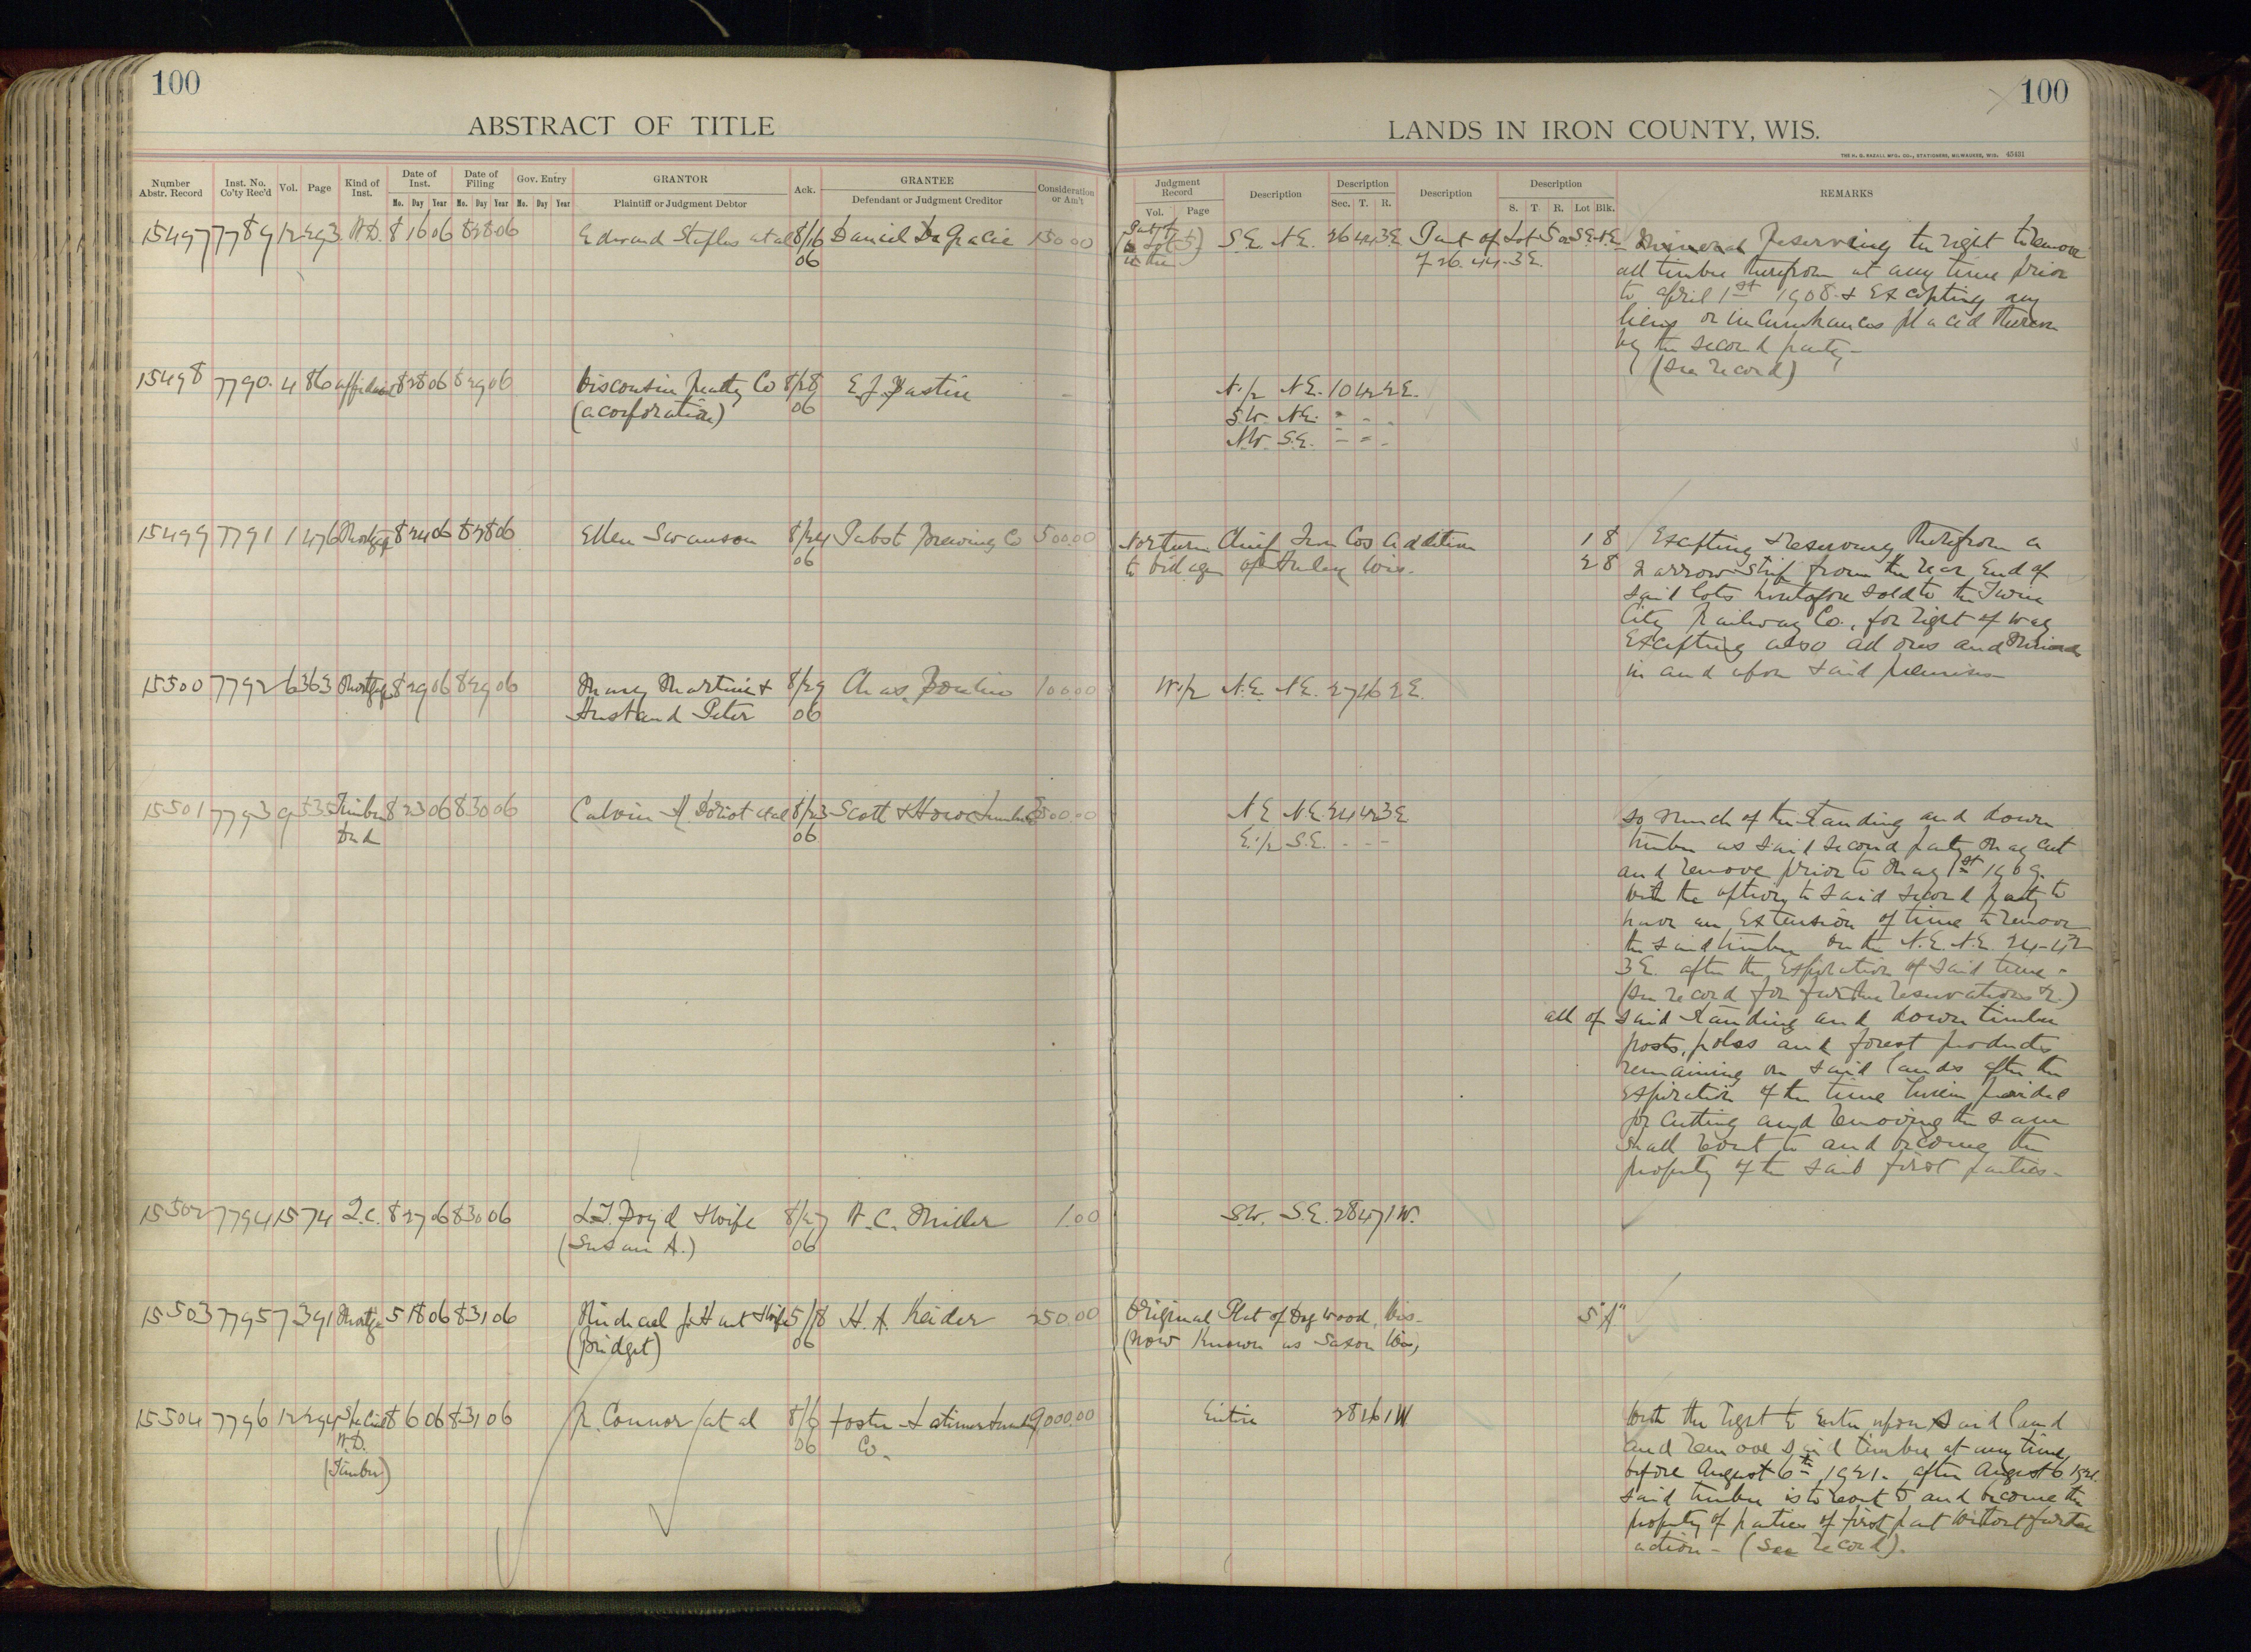 100
100
ABSTRACT OF TITLE
LANDS IN IRON COUNTY, WIS.
THE H. G. RAZALL MFG. CO., STATIONERS, MILWAUKEE, WIS. 45431
Number Abstr. Record
Inst. No. Co'ty Rec'd
Vol.
Page
Kind of Inst.
Date of Inst.
Mo. Day Year
Date of Filing
Mo. Day Year
Gov. Entry
Mo. Day Year
GRANTOR
Plaintiff or Judgment Debtor
Ack.
GRANTEE
Defendant or Judgment Creditor
Consideration or Am't
Judgment Record
Vol. Page
Description
Description
Sec. T. R.
Description
Description
S. T. R. Lot Blk.
REMARKS
15497 7789 12 293 W.D. 8 16 06 8 28 06 Edward Staples et al 8/16 Daniel 150.00 S.E. N.E. 26 44 3E Part of Lot 5 or S.E. N.E.
06
of 26. 44. 3E.
Reserving the right to remove
all timber therefrom at any time prior
to April 1st 1908. & Excepting any
liens or incumbrances placed thereon
by the second party-
(See record)
15498 7790. 4 86 Affidavit 8 28 06 8 29 06 Wisconsin Realty Co 8/28 E. J. N. 1/2 N.E. 10 42 2E.
(a corporation) 06 S.W. N.E. " - -
N.W. S.E. - - -
15499 7791 1 476 Mortgage 8 24 06 8 28 06 Ellen Swanson 8/24 Pabst Brewing Co 500.00 Northern Chief Iron Cos Addition 1 8
06 to village of Hurley Wis. 2 8
Excepting & reserving therefrom a
narrow strip from the rear end of
said lots heretofore sold to the Twin
City Railway Co., for right of way
Excepting also all ores and minerals
in and upon said premises
15500 7792 6 363 Mortgage 8 29 06 8 29 06 Mary Martini & 8/29 Chas. 100.00 W. 1/2 N.E. N.E. 27 46 2E.
Husband Peter 06
15501 7793 9 535 Timber 8 23 06 8 30 06 Calvin et al 8/23 Scott & Howe Lumber 500.00 N.E. N.E. 24 42 3E
Deed 06 E. 1/2 S.E. - - -
So much of the standing and down
timber as said second party may cut
and remove prior to May 1st 1909.
With the option to said second party to
have an extension of time to remove
the said timber on the N.E. N.E. 24-42
3E. after the expiration of said time-
(See record for further reservations &.)
all of said standing and down timber
posts, poles and forest products
remaining on said lands after the
expiration of the time herein provided
for cutting and removing the same
shall revert to and become the
property of the said first parties-
15502 7794 15 74 Q.C. 8 27 06 8 30 06 L.T. Boyd & wife 8/27 W. C. Miller 1.00 S.W. S.E. 28 47 1W.
(Susan A.) 06
15503 7795 7 391 Mortge 5 18 06 8 31 06 Michael J. Hart & wife 5/18 H. A. Keider 250.00 Original Plat of Dogwood, Wis- 5 "A"
(Bridget) 06 (now known as Saxon Wis)
15504 7796 12 294 Special 8 6 06 8 31 06 R. Connor et al 8/6 Foster Latimer Lumber 9,000.00 Entire 28 46 1W
W.D. 06 Co.
(Timber)
With the right to enter upon said land
and remove said timber at any time
before August 6th 1921. after August 6 1921.
said timber is to revert to and become the
property of parties of first part without further
action- (See record).